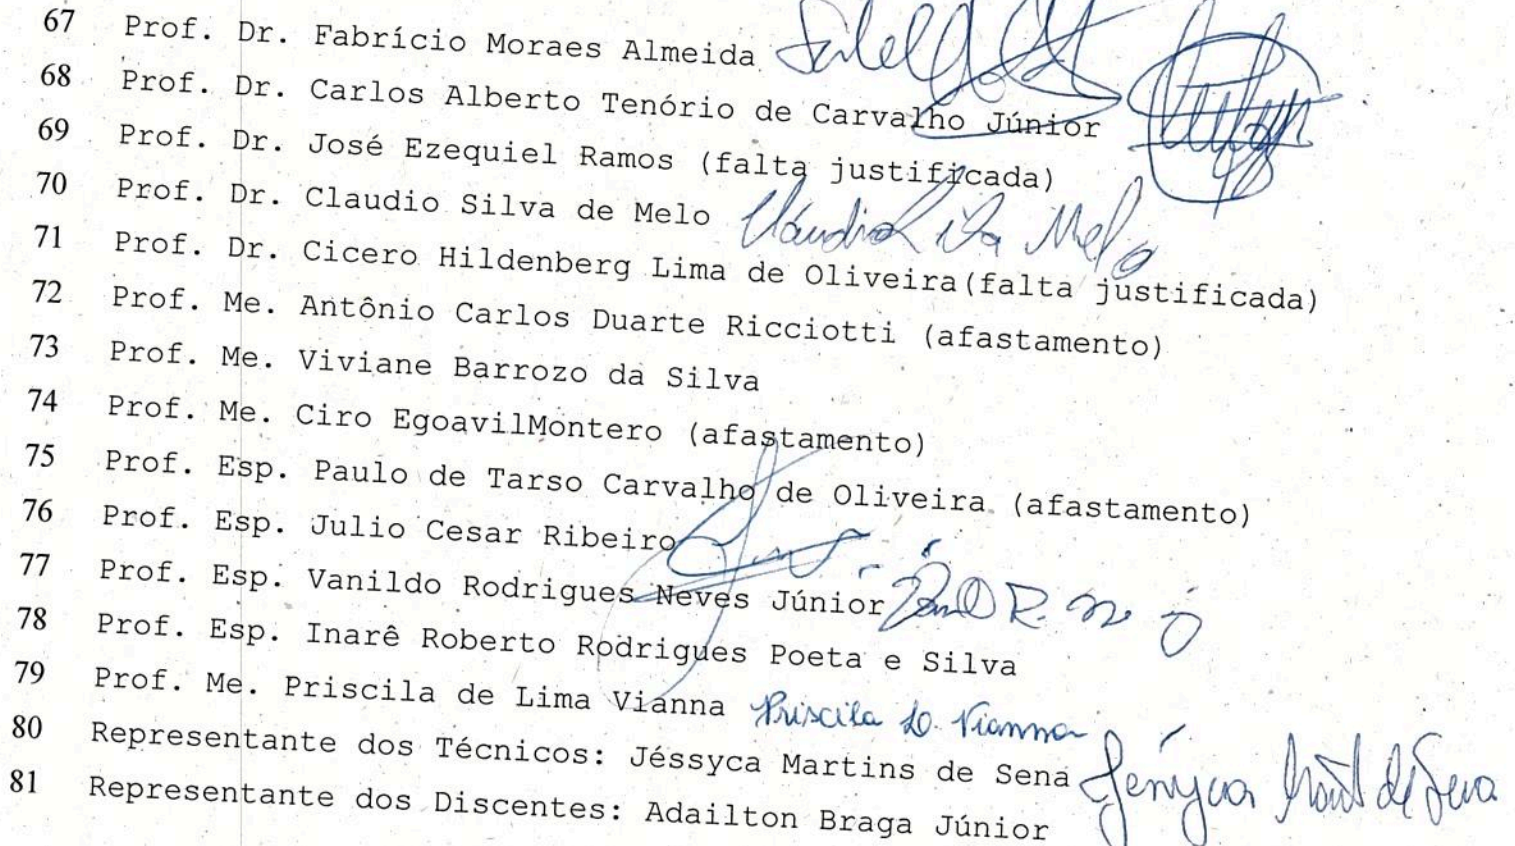 67 Prof. Dr. Fabrício Moraes Almeida
68 Prof. Dr. Carlos Alberto Tenório de Carvalho Júnior
69 Prof. Dr. José Ezequiel Ramos (falta justificada)
70 Prof. Dr. Claudio Silva de Melo Cláudio Silva Melo
71 Prof. Dr. Cicero Hildenberg Lima de Oliveira(falta justificada)
72 Prof. Me. Antônio Carlos Duarte Ricciotti (afastamento)
73 Prof. Me. Viviane Barrozo da Silva
74 Prof. Me. Ciro EgoavilMontero (afastamento)
75 Prof. Esp. Paulo de Tarso Carvalho de Oliveira (afastamento)
76 Prof. Esp. Julio Cesar Ribeiro
77 Prof. Esp. Vanildo Rodrigues Neves Júnior
78 Prof. Esp. Inarê Roberto Rodrigues Poeta e Silva
79 Prof. Me. Priscila de Lima Vianna Priscila L. Vianna
80 Representante dos Técnicos: Jéssyca Martins de Sena
81 Representante dos Discentes: Adailton Braga Júnior